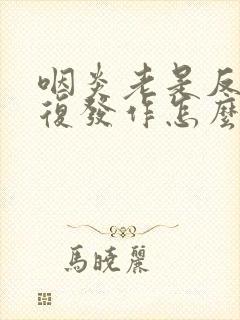 咽炎老是反
復發作怎麽
馬曉麗